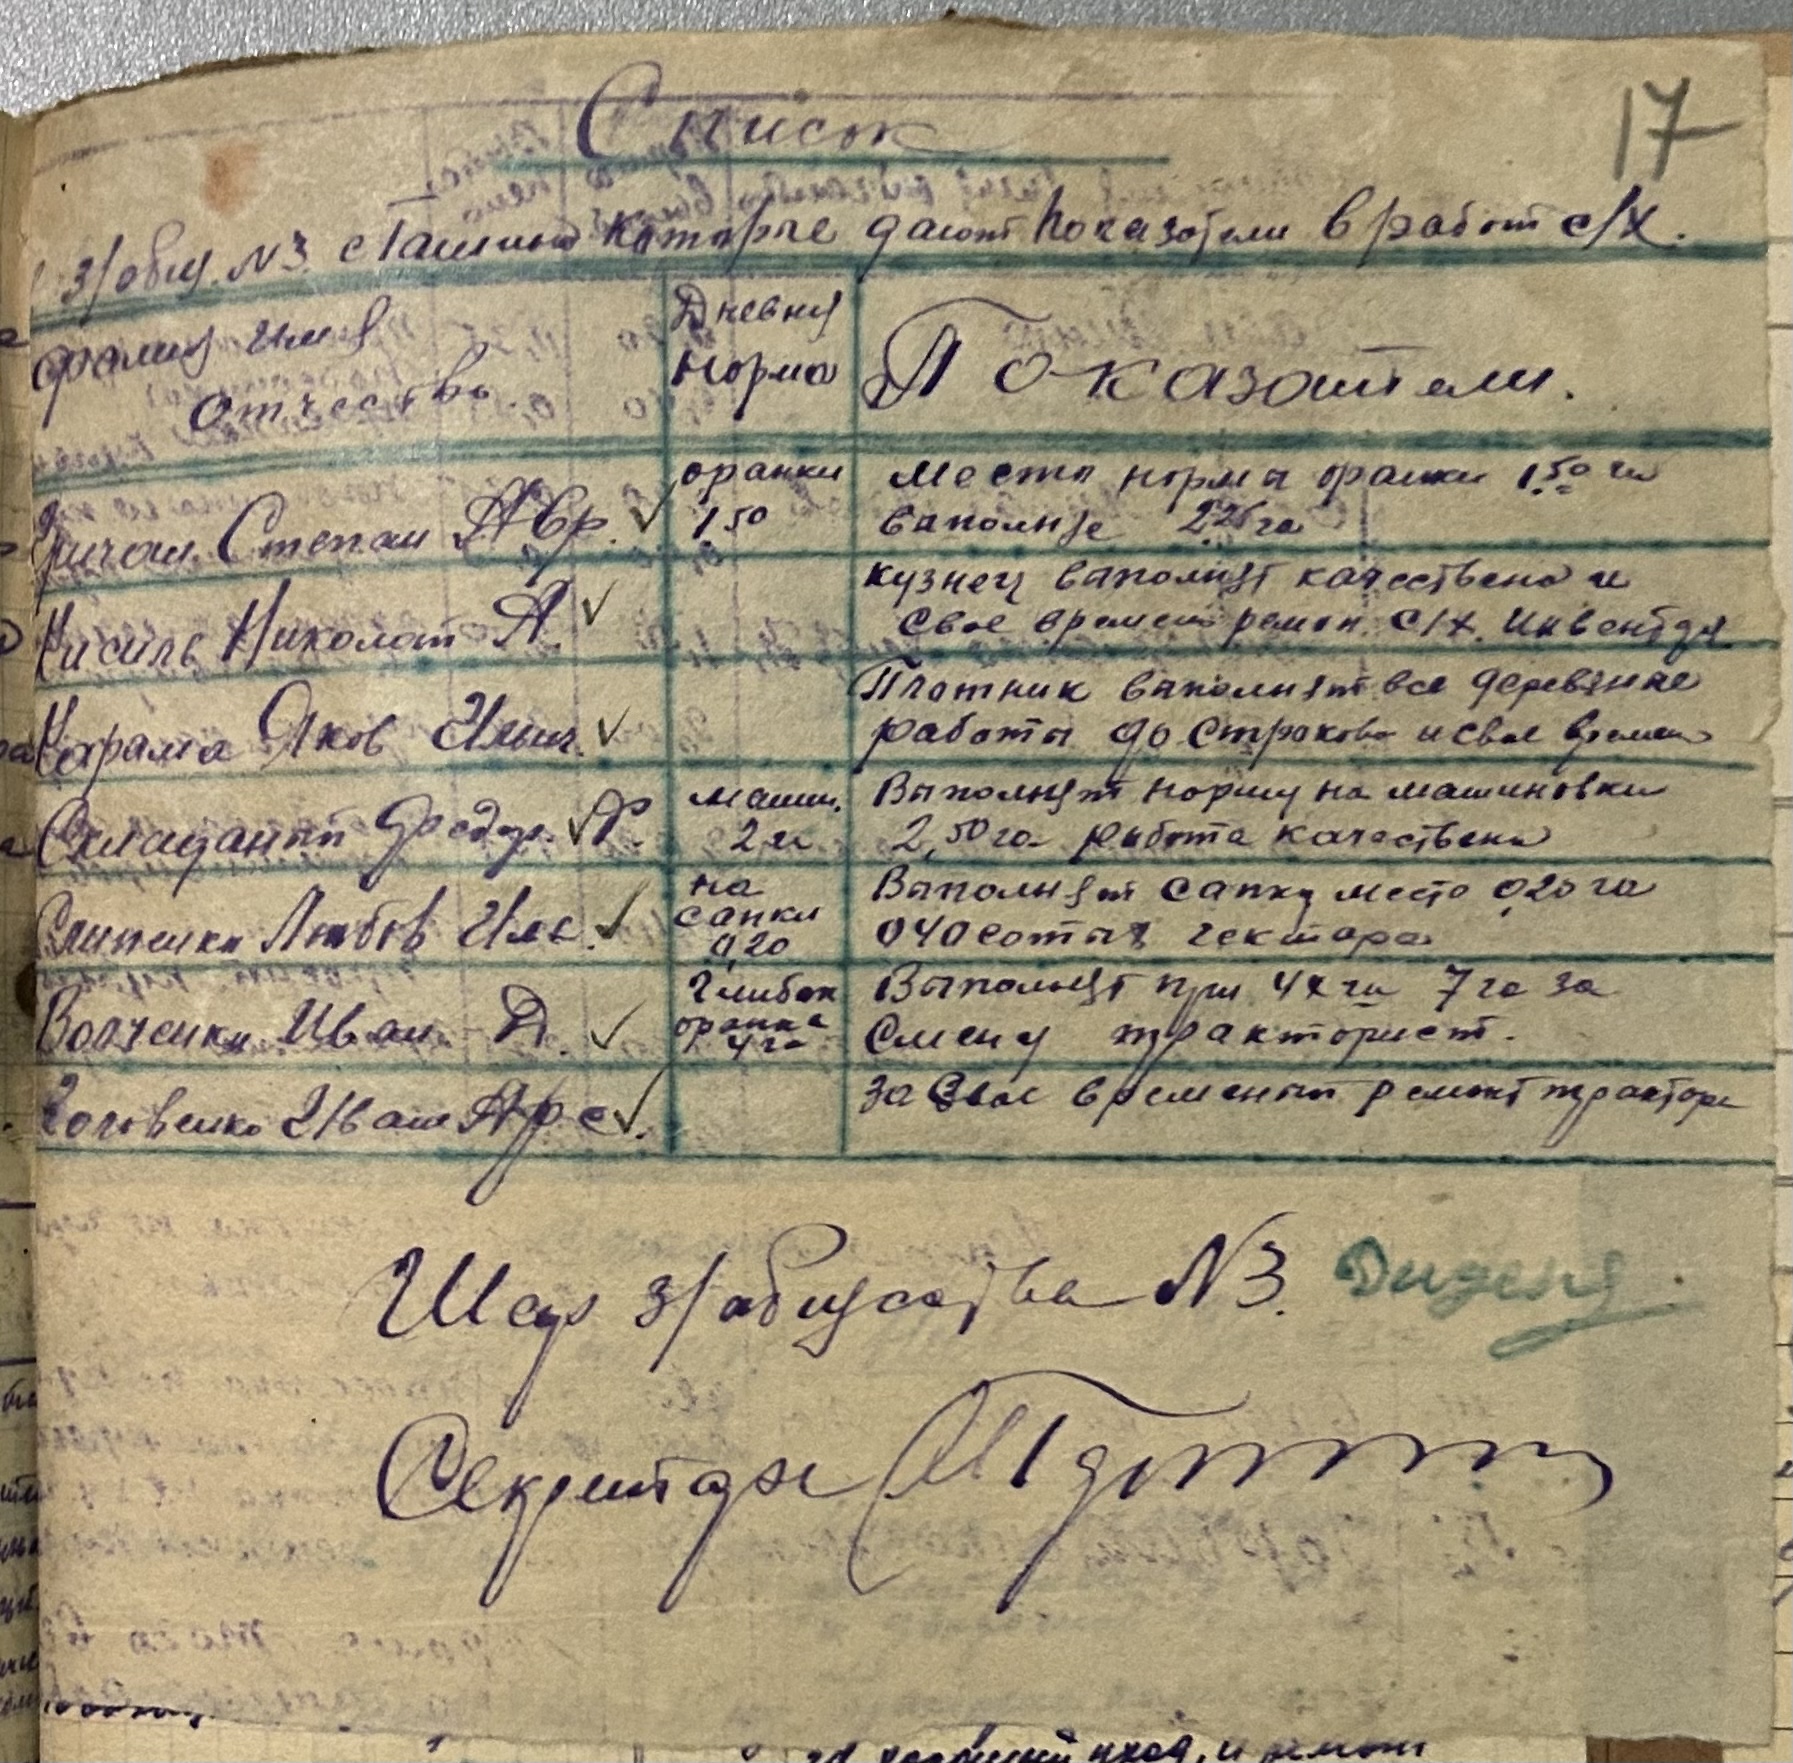 Список
17
з/общ. №3. с Ташино которые дают показатели в работ с/х.
фамия имя
отчество
Дневня
норма
Показатели.
Степан Авр. ✓
оранки
1,50
место норма оранки 1,50 га
ваполняе 2,25 га
Кисиль Николай А. ✓
кузнец ваполнят качествено и
свое времено ремон. с/х. инвентдя
Карама Яков Ильич. ✓
Плотник ваполнят все деревяные
работы до строково и свое времен
Складаний Федор. ✓ Ф.
машин.
2 га
Выполнят норму на машиновки
2,50 га работа качествено
Слипенко Любов Иль. ✓
на
сапки
0,20
Выполнят сапку место 0,20 га
040 сотых гектара
Волченко Иван Д. ✓
Глибок
оранка
4 га
Выполнят при 4х га 7 га за
смену тракторист.
Головенко Иван Арс ✓.
за свое временый ремонт трактора
Шеф з/общества №3.
Секретарь